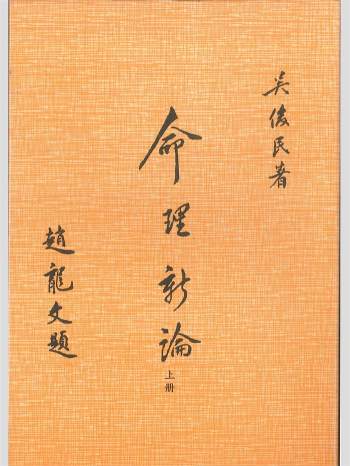 吳俊民著
命理新論
上册
趙龍文題